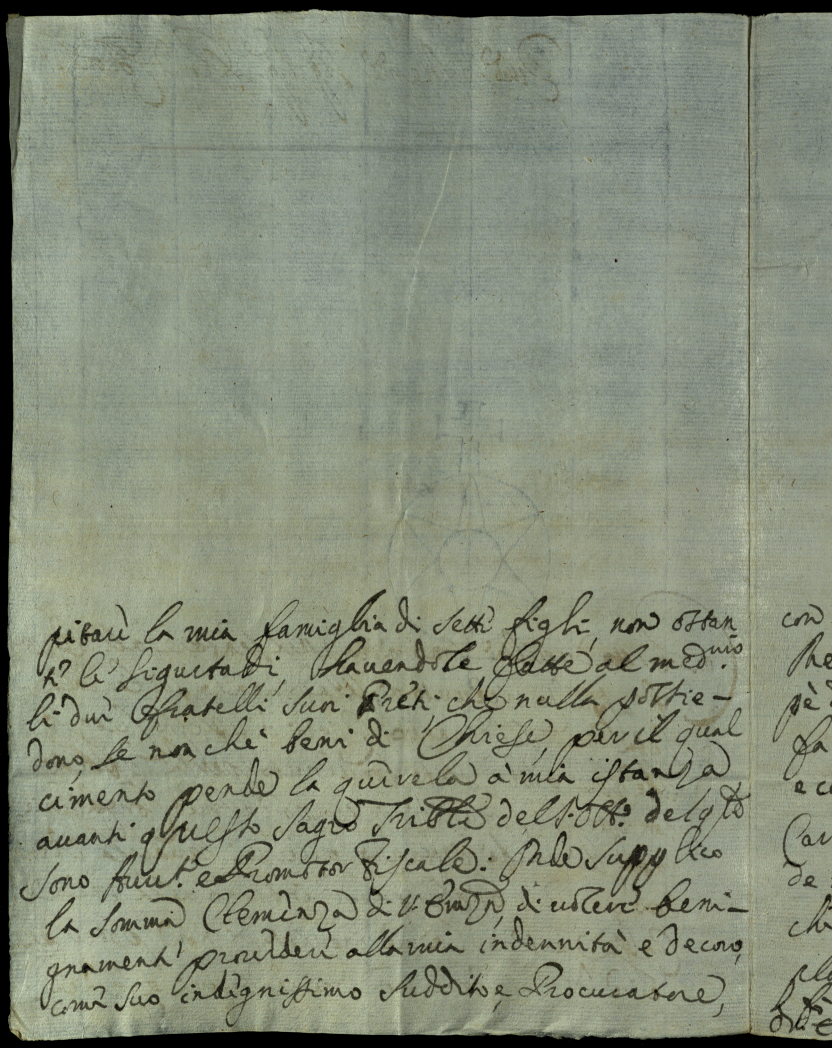 pitare la mia famiglia di sette figli, non ostan
te le sigurtadi, havendole fatte al med.mo
li due fratelli suoi Preti, che nulla possie-
dono, se non che beni di Chiese, per il qual
cimento pende la querela à mia istanza
avanti questo Sagro Trib.le del S. Off.o del q.le
sono Avv.t e Promotor Fiscale: Inde supplico
la somma Clemenza di V. Em.za, di volere beni-
gnamente provedere alla mia indennità e decoro,
come suo indegnissimo suddito, e Procuratore,
con
pè
fa
e c
Car
de
ch